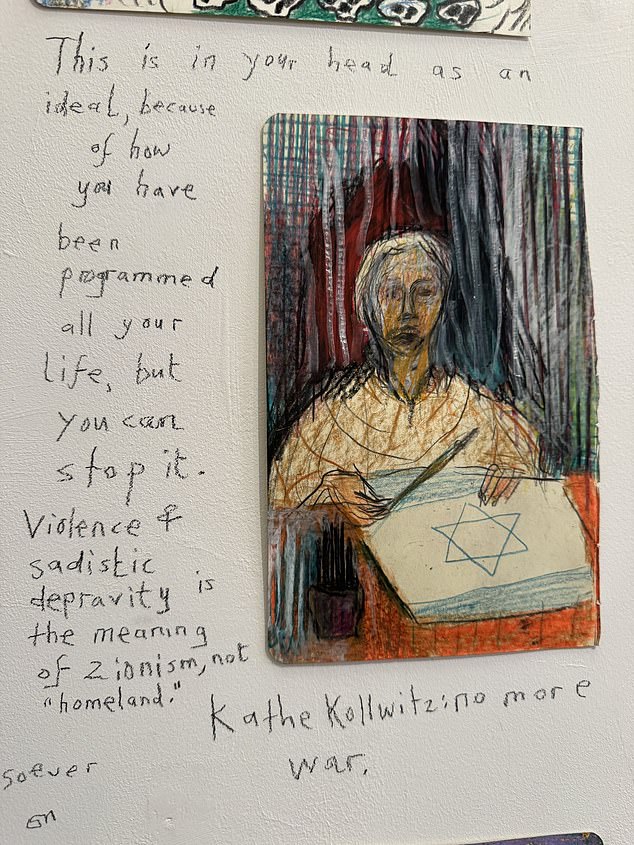 This is in your head as an
ideal, because
of how
you have
been
programmed
all your
life, but
you can
stop it.
Violence &
sadistic
depravity is
the meaning
of Zionism, not
"homeland."
Kathe Kollwitz: no more
war.
soever
en